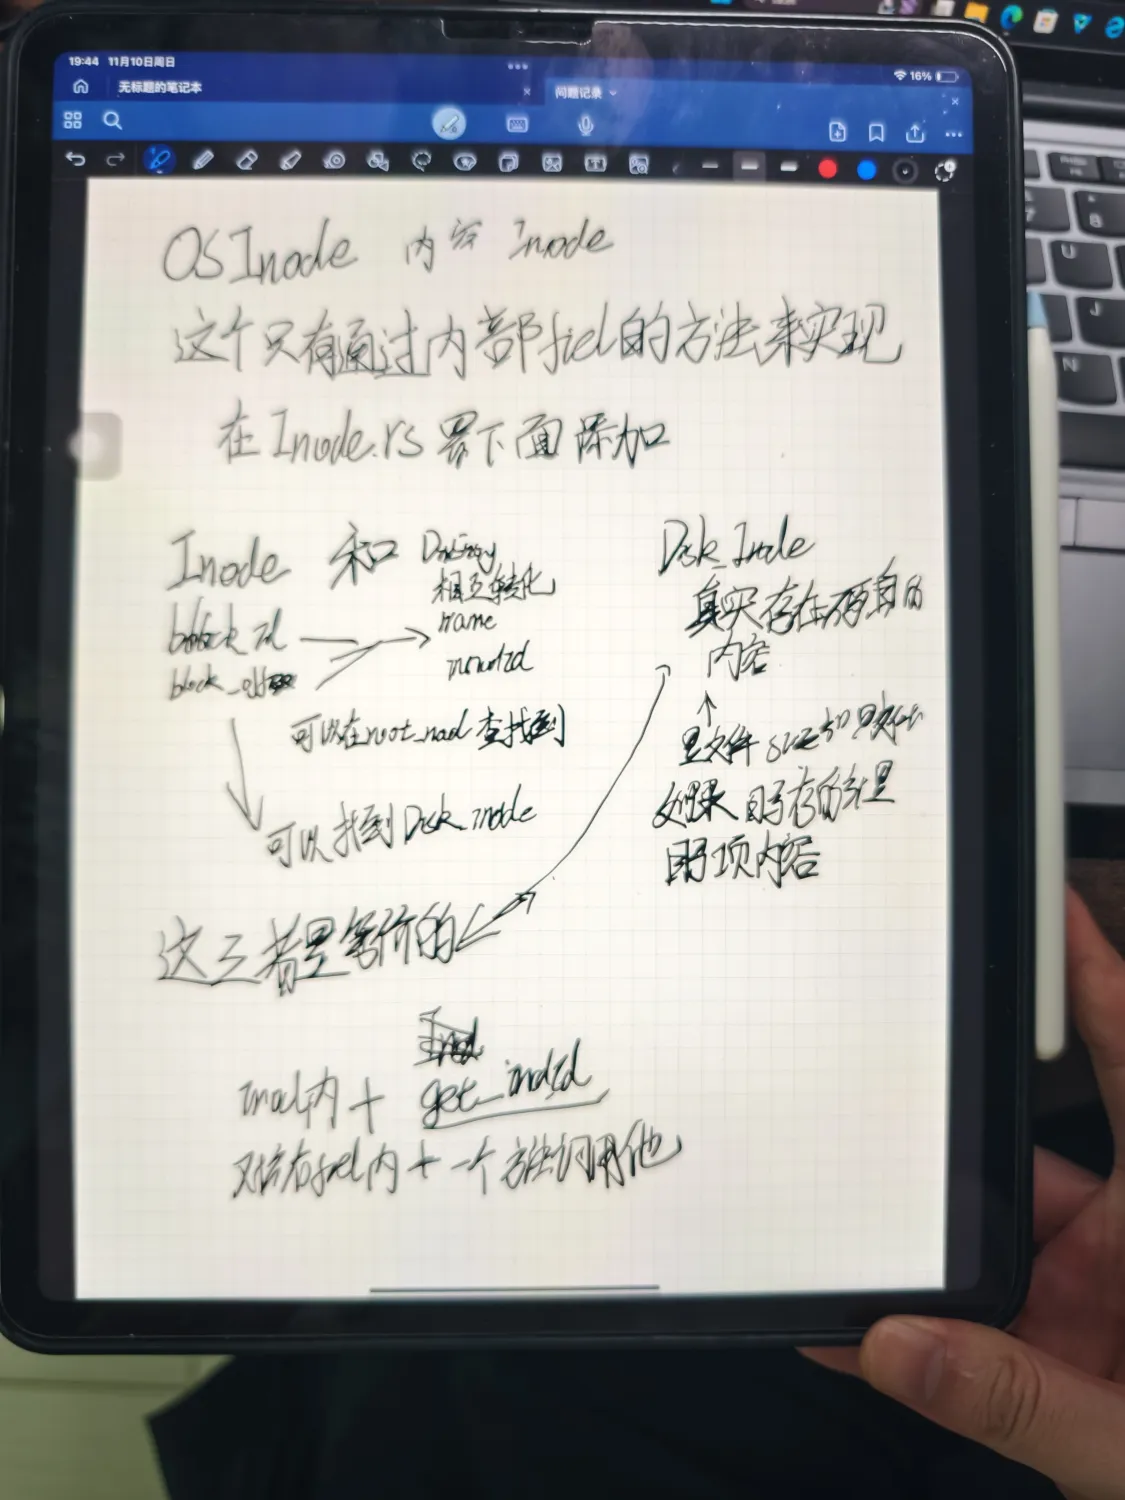 19:44 11月10日周日
16%
无标题的笔记本
问题记录
OSInode 内容 Inode
这个只有通过内部fiel的方法来实现
在Inode.rs 下面添加
Inode 和 DirEntry
相互转化
block_id
name
block_
inodeId
可以在root_inod查找到
可以找到Disk_inode
Disk_Inode
真实存在
内容
是文件 size
目录
目录项内容
这三者是等价的
inode内+ get_indId
fiel内+一个方法调用他